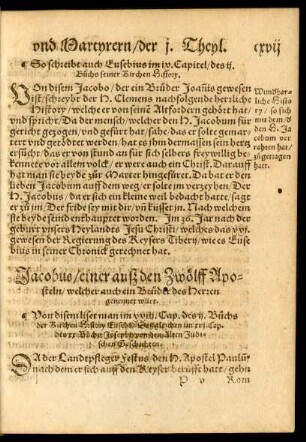 vnd Martyrern/der j. Theyl.
cxvij
¶ So schreibt auch Eusebius im ix. Capitel/des ij.
Büchs seiner Kirchen History.
VOn disem Jacobo/der ein Brüder Joañis gewesen
ist/schreybt der H. Clemens nachfolgende herrliche
History/welche er von seinẽ Altfordern gehört hat/
vnd spricht/Da der mensch/welcher den H. Jacobum für
gericht gezogen/vnd gefürt hat/sahe/das er solte gemar-
tert vnd getödtet werden/ward er durch dise sach bewegt/
vnd gieng herzu/vnd thät da für sich selbers freywillig be-
kentnus vor allem volck/er were auch ein Christ. Darauff
hat man sie beyde zur Marter hingefürt. Da bat er den
lieben Jacobum auff dem weg/er solte im verzeyhen. Der
H. Jacobus/da er sich ein kleine weil bedacht hatte/sagt
er zu jm. Der frid sey mit dir/vnd küsset jn. Nach welchem
ist beyde seind enthauptet worden. Im 36. Jar nach der
geburt vnsers Heylands Jesu Christi/welches das xvij.
gewesen der Regierung des Keysers Tiberij/wie es Euse-
bius in seiner Chronick gerechnet hat.
Wundbar-
liche Histo-
ry/
den H. Ja-
cobum ver
rahten hat/
zugetragen
hatt.
Jacobus/einer auß den Zwölff Apo-
steln/welcher auch ein Brüder des Herren
genennet wirt.
¶ Von disem liset man im xviij. Cap. des ij. Büchs
der Kirchen History Eusebij. Desgleichen im xvj. Cap.
des xx. Büchs Josephi von den alten Jüdi-
schen Geschichten.
DA der Landtpfleger Festus/den H. Apostel Paulum
nach dem er sich auff den Keyser berüfft hatt/gehn
P v
Rom